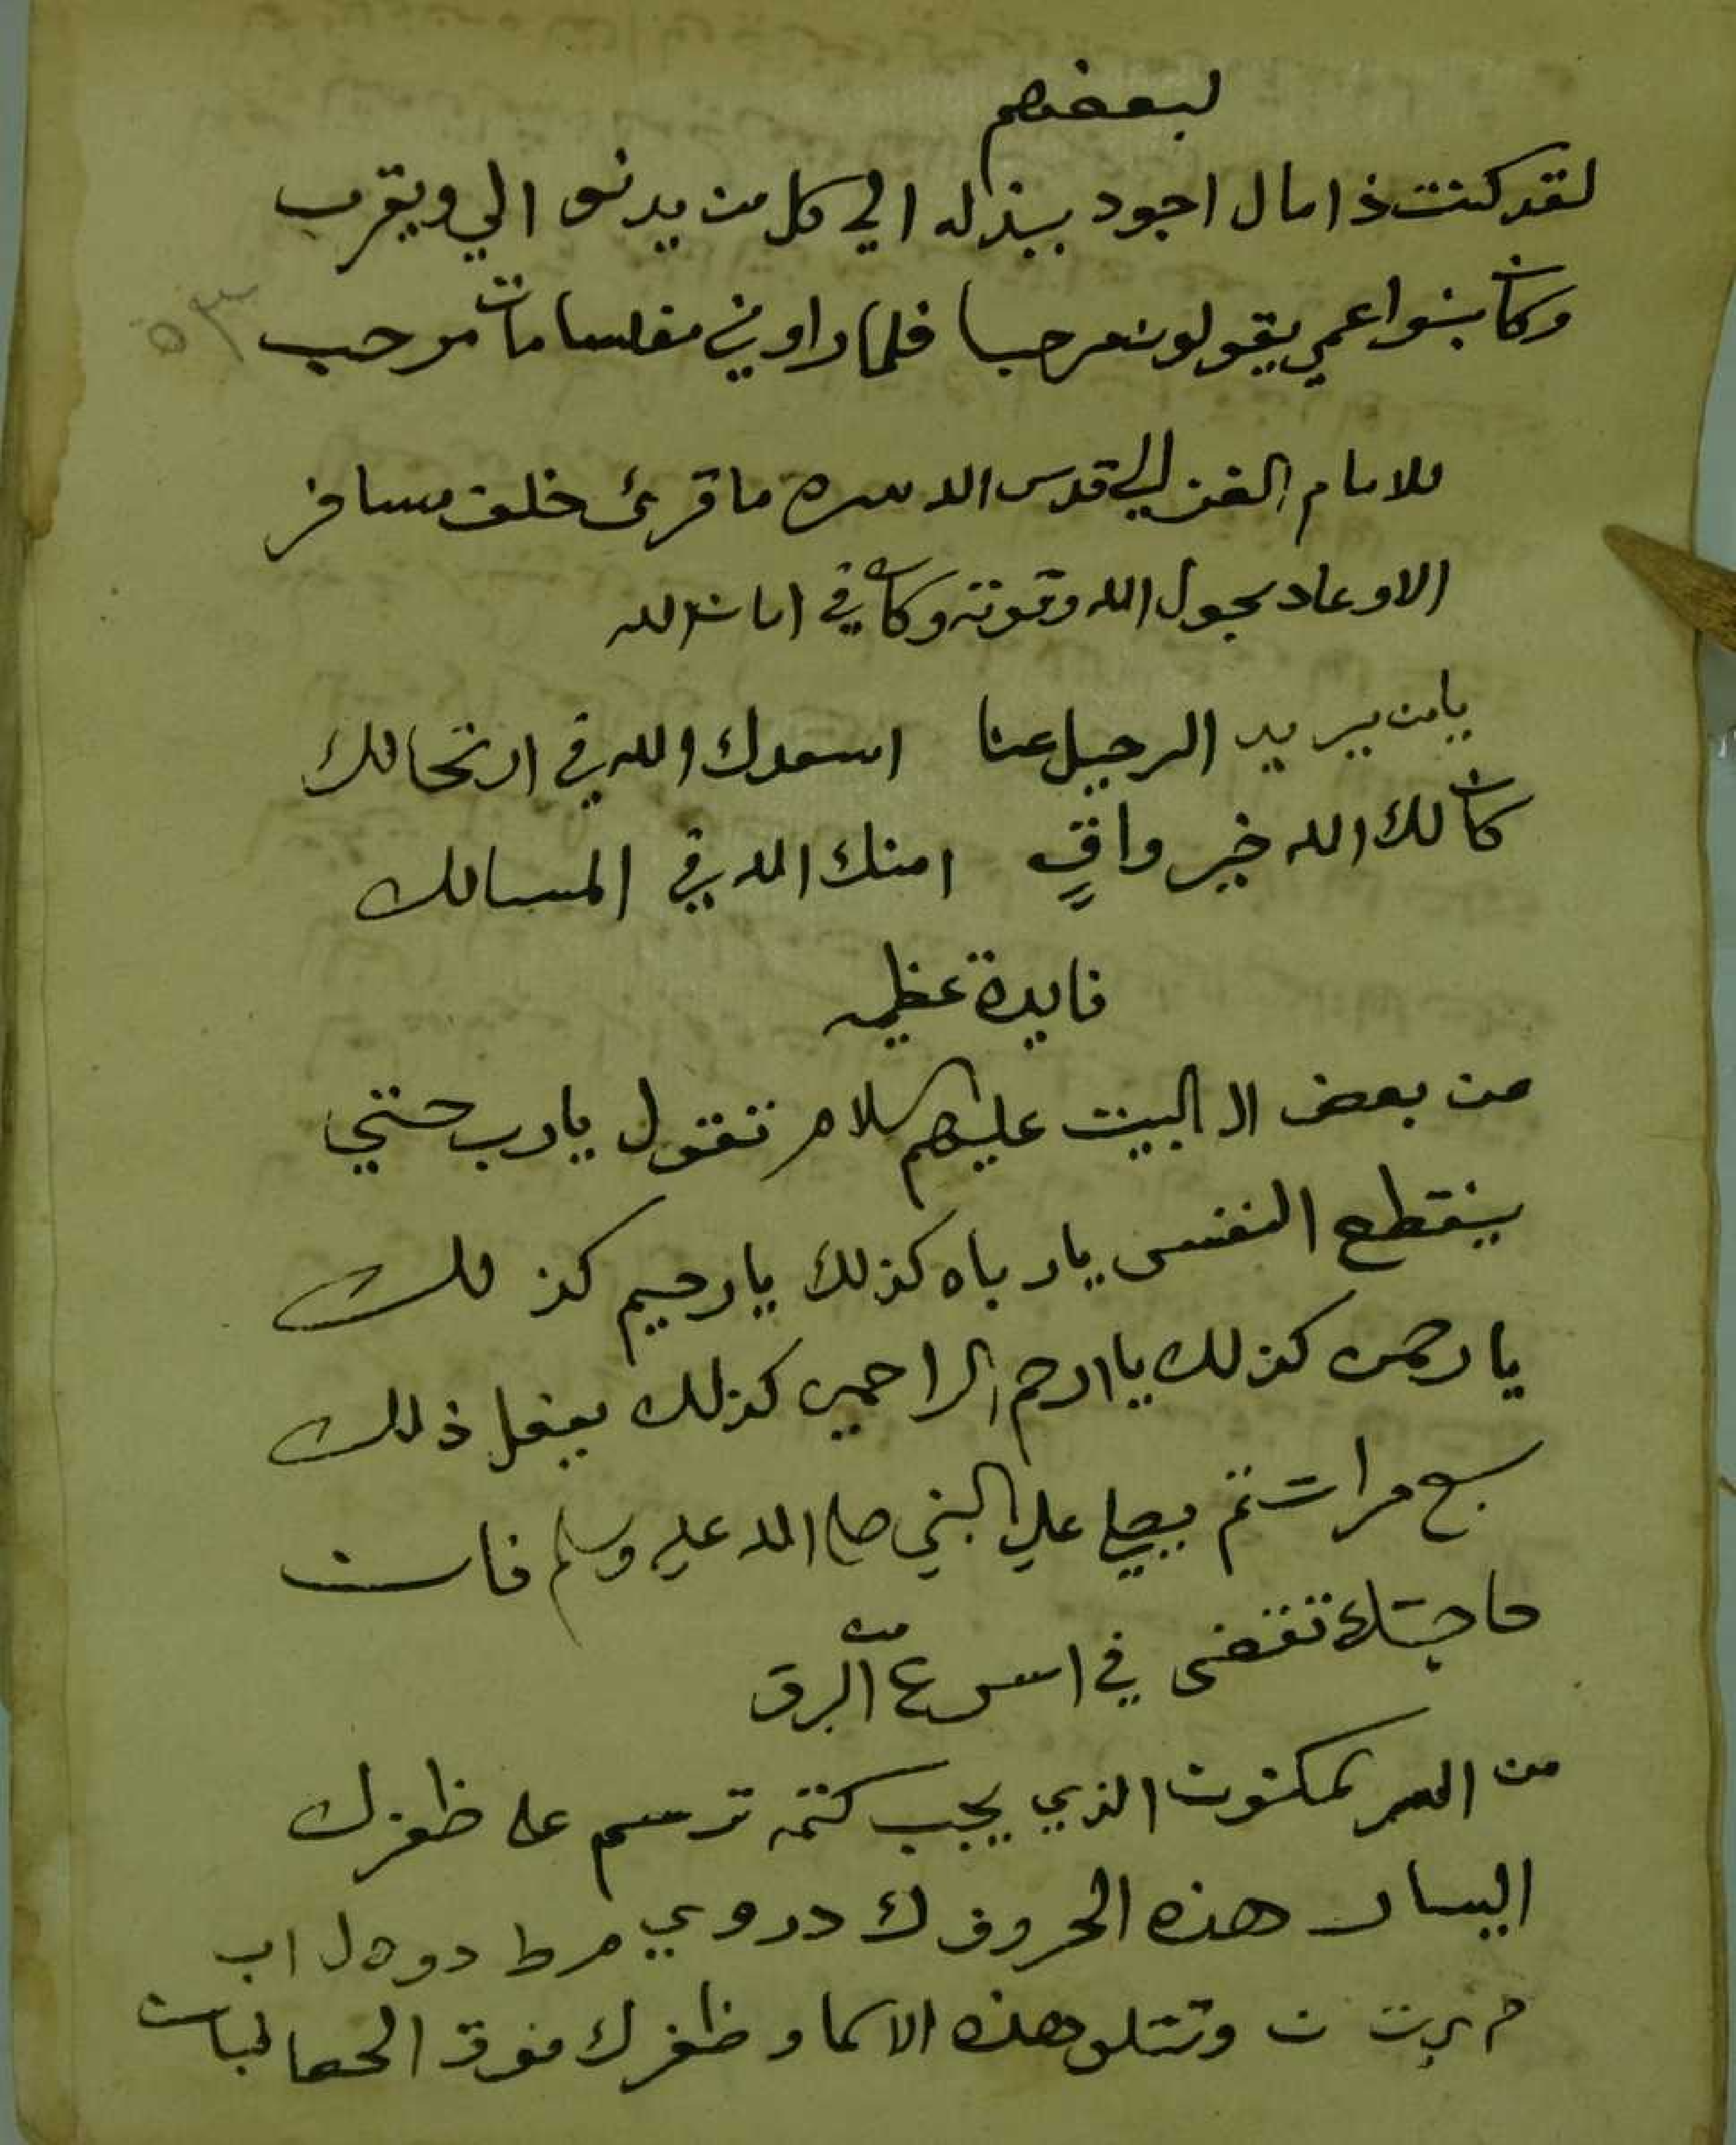 لبعضهم
لقد كنت ذا مال اجود ببذله الي كل من يدنو الي ويقرب
وكان بنوا عمي يقولون مرحبا فلما راوني مفلسا مات مرحب
٥٣
للامام الغزالي قدس الله سره ما قرئ خلف مسافر
الا وعاد بحول الله وقوته وكان في امان الله
يا من يريد الرحيل عنا اسعدك الله في ارتحالك
كان لك الله خير واقٍ امنك الله في المسالك
فايدة عظيمه
من بعض ال البيت عليهم السلام تقول يا رب حتي
ينقطع النفس يا رباه كذلك يا رحيم كذلك
يا رحمن كذلك يا ارحم الراحمين كذلك يفعل ذلك
سبع مرات ثم يصلي علي النبي صلى الله عليه وسلم فان
حاجتك تقضى في اسرع من البرق
من السر المكنون الذي يجب كتمه ترسم على ظفرك
اليسار هذه الحروف ك د ر و ي م ط د و ه ل ا ب
وتتلو هذه الاسما و ظفرك فوق الحصالبان